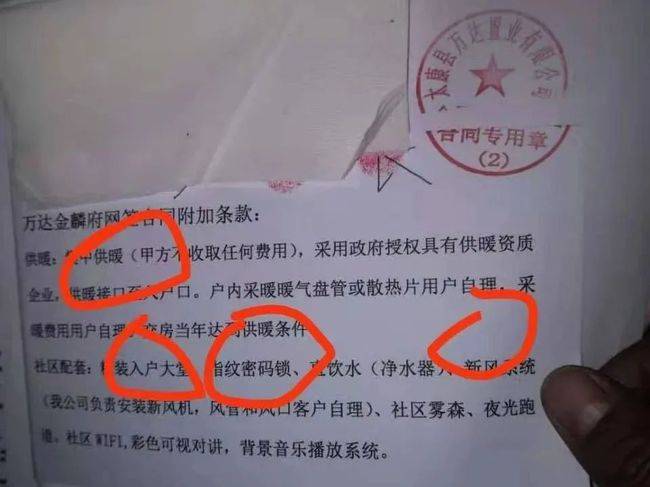 太康县万达置业有限公司
合同专用章
(2)
万达金麟府网签合同附加条款:
供暖:集中供暖(甲方不收取任何费用),采用政府授权具有供暖资质
企业,供暖接口至入户口。户内采暖暖气盘管或散热片用户自理,采
暖费用用户自理,交房当年达到供暖条件
社区配套:精装入户大堂、指纹密码锁、直饮水(净水器)、新风系统
(我公司负责安装新风机,风管和风口客户自理)、社区雾森、夜光跑
道、社区WIFI,彩色可视对讲,背景音乐播放系统。